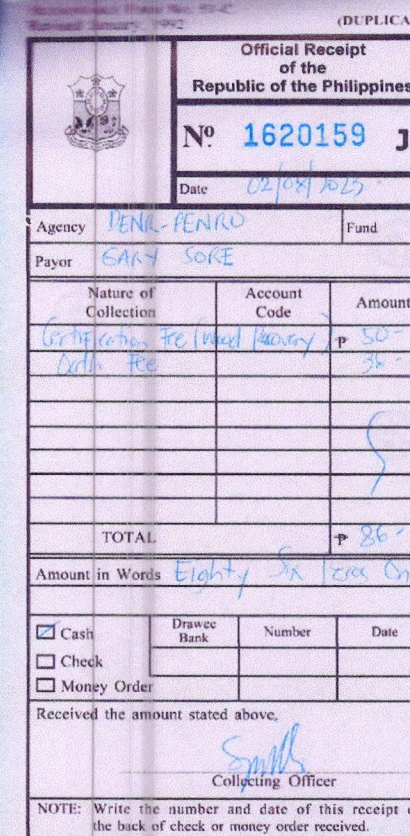 (DUPLICA
Official Receipt
of the
Republic of the Philippines
Nº 1620159 J
Date 02/08/2023
Agency DENR-PENRO
Fund
Payor GARY SORE
Nature of Collection
Account Code
Amount
Certification Fee (Wood Recovery) ₱ 50-
Oath Fee 36-
TOTAL ₱ 86-
Amount in Words Eighty Six
Cash
Drawee Bank
Number
Date
Check
Money Order
Received the amount stated above,
Collecting Officer
NOTE: Write the number and date of this receipt
the back of check or money order received.